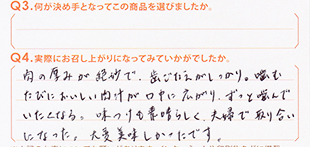 Q3.何が決め手となってこの商品を選びましたか。
Q4.実際にお召し上がりになってみていかがでしたか。
肉の厚みが絶妙で、歯ごたえがしっかり。噛む
たびにおいしい肉汁が口中に広がり、ずっと噛んで
いたくなる。味つけも素晴らしく、夫婦で取り合い
になった。大変美味しかったです。